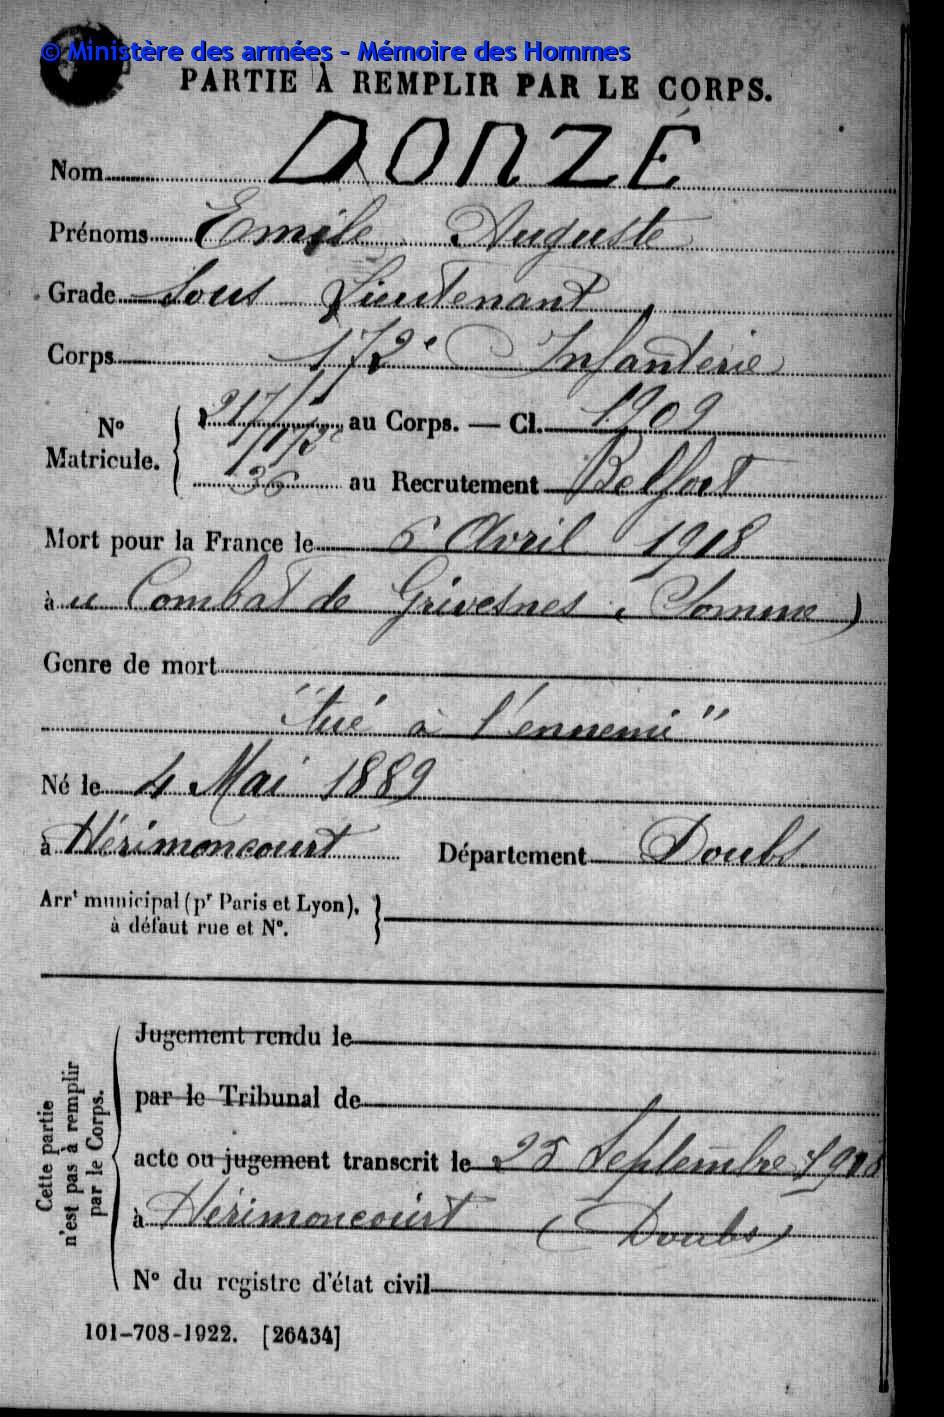 © Ministère des armées - Mémoire des Hommes
PARTIE À REMPLIR PAR LE CORPS.
Nom DONZÉ
Prénoms Emile Auguste
Grade Sous Lieutenant
Corps 172e Infanterie
No Matricule. { 217/172e au Corps. — Cl. 1909
36 au Recrutement Belfort
Mort pour la France le 6 Avril 1918
à u Combat de Grivesnes (Somme)
Genre de mort
"tué à l'ennemi"
Né le 4 Mai 1889
à Hérimoncourt Département Doubs
Arrt municipal (pr Paris et Lyon), à défaut rue et No. }
Cette partie n'est pas à remplir par le Corps. {
Jugement rendu le
par le Tribunal de
acte ou jugement transcrit le 25 Septembre 1918
à Hérimoncourt (Doubs)
No du registre d'état civil
101-708-1922. [26434]